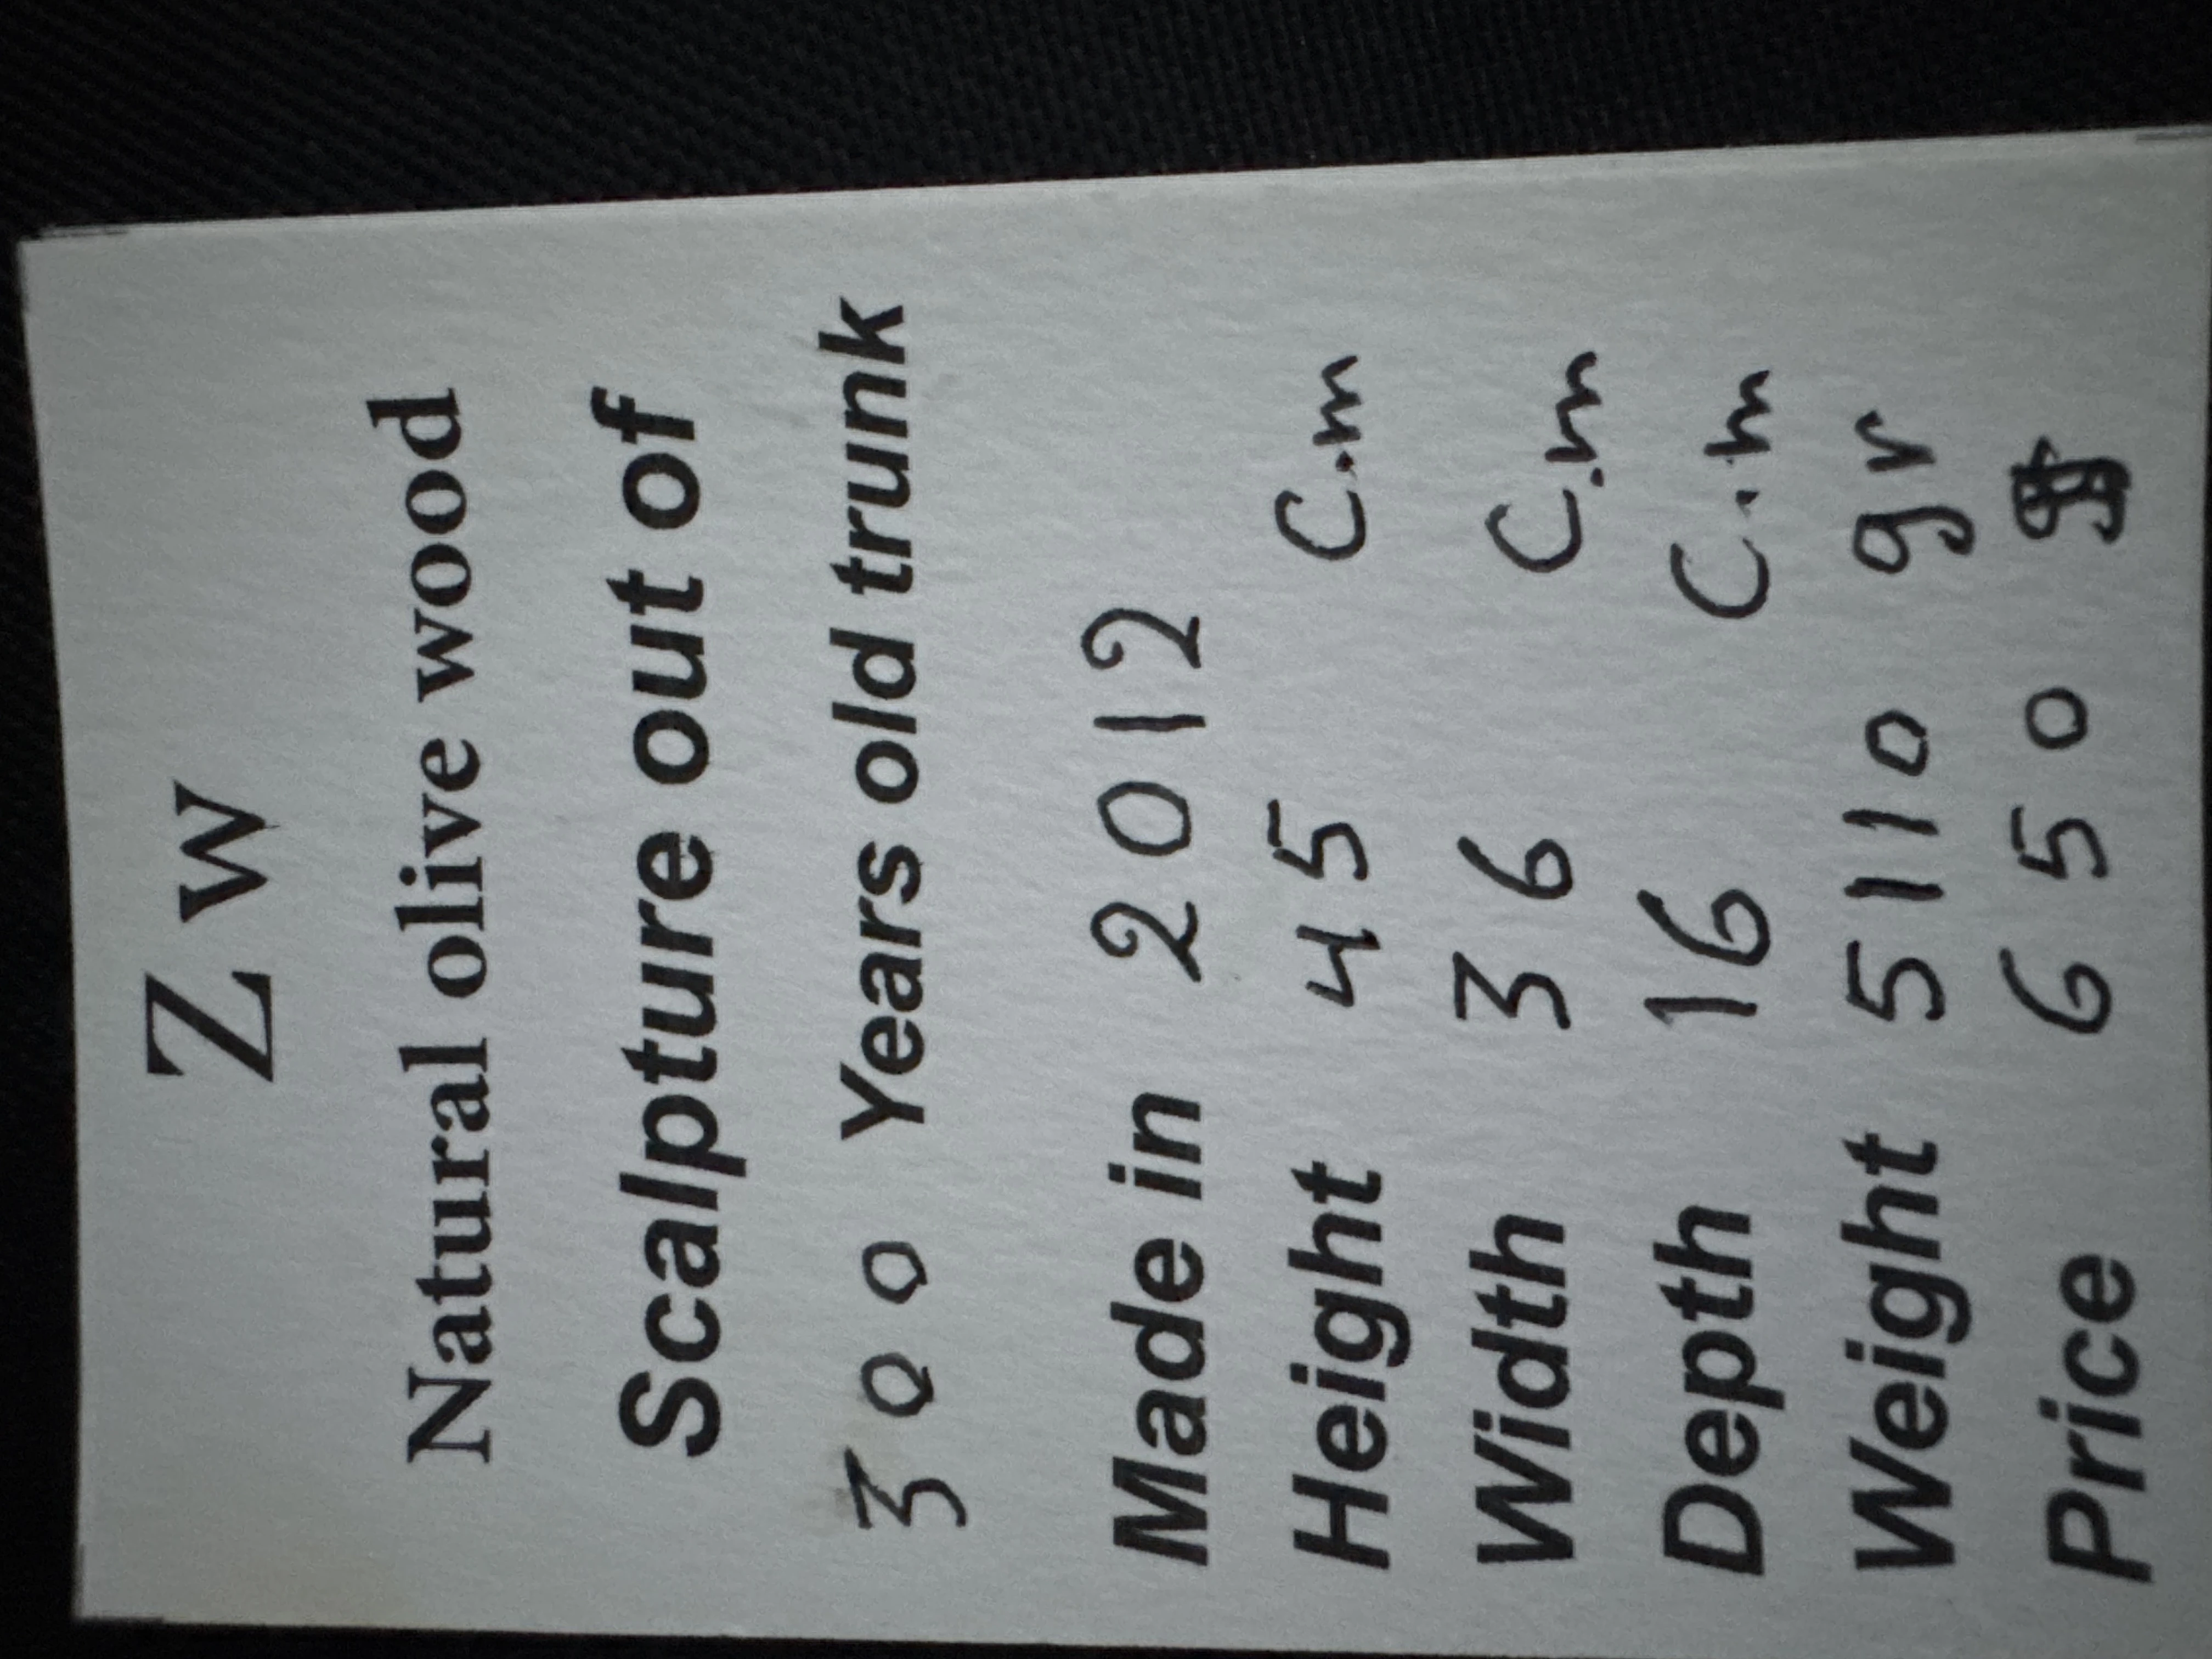 Z w
Natural olive wood
Scalpture out of
300 Years old trunk
Made in 2012
Height 45 C.m
Width 36 C.m
Depth 16 C.m
Weight 5110 gr
Price 650 $